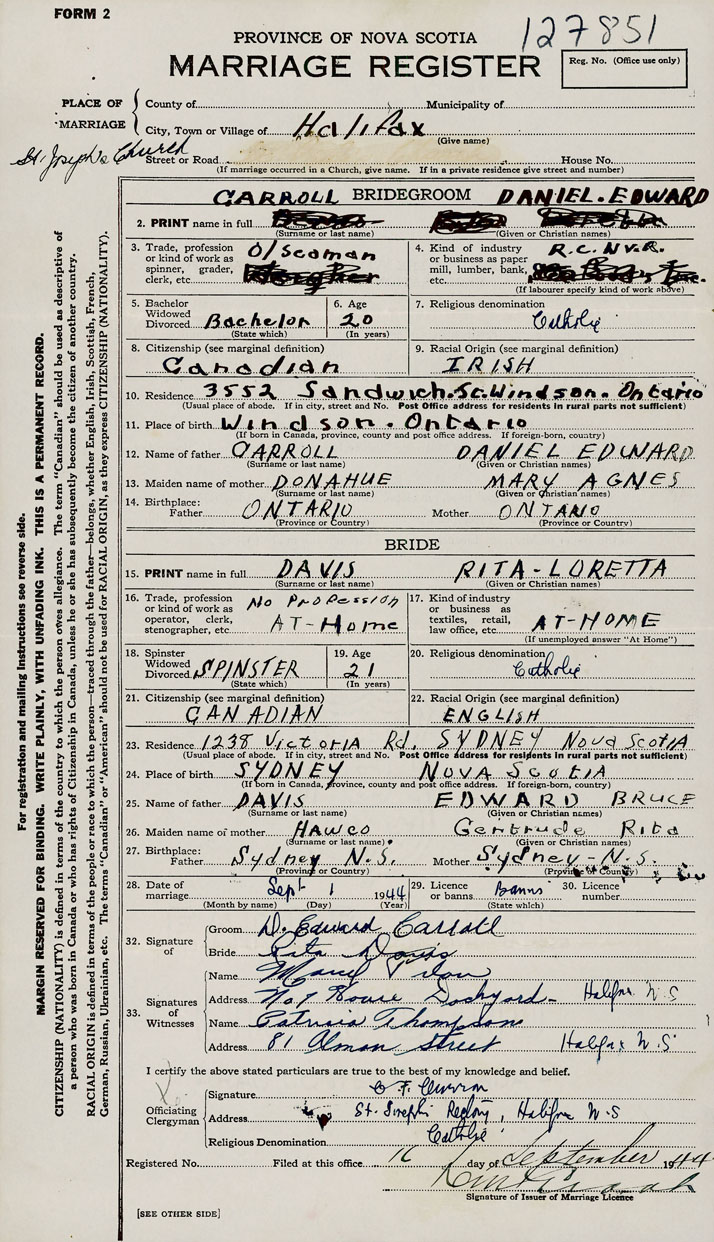 FORM 2
127851
PROVINCE OF NOVA SCOTIA
MARRIAGE REGISTER
Reg. No. (Office use only)
PLACE OF MARRIAGE
County of Municipality of
City, Town or Village of Halifax
(Give name)
St. Joseph's Church
Street or Road House No.
(If marriage occurred in a Church, give name. If in a private residence give street and number)
CARROLL BRIDEGROOM DANIEL. EDWARD
2. PRINT name in full
(Surname or last name) (Given or Christian names)
3. Trade, profession or kind of work as spinner, grader, clerk, etc. O/Seaman
4. Kind of industry or business as paper mill, lumber, bank, etc. R.C.N.V.R.
(If labourer specify kind of work above)
5. Bachelor Widowed Divorced Bachelor
(State which)
6. Age 20
(In years)
7. Religious denomination
Catholic
8. Citizenship (see marginal definition)
Canadian
9. Racial Origin (see marginal definition)
IRISH
10. Residence 3552 Sandwich. St. Windson. Ontario
(Usual place of abode. If in city, street and No. Post Office address for residents in rural parts not sufficient)
11. Place of birth Windson. Ontario
(If born in Canada, province, county and post office address. If foreign-born, country)
12. Name of father CARROLL DANIEL EDWARD
(Surname or last name) (Given or Christian names)
13. Maiden name of mother DONAHUE MARY AGNES
(Surname or last name) (Given or Christian names)
14. Birthplace: Father ONTARIO Mother ONTARIO
(Province or Country) (Province or Country)
BRIDE
15. PRINT name in full DAVIS RITA-LORETTA
(Surname or last name) (Given or Christian names)
16. Trade, profession or kind of work as operator, clerk, stenographer, etc. No Profession AT-Home
17. Kind of industry or business as textiles, retail, law office, etc. AT-HOME
(If unemployed answer "At Home")
18. Spinster Widowed Divorced SPINSTER
(State which)
19. Age 21
(In years)
20. Religious denomination
Catholic
21. Citizenship (see marginal definition)
CANADIAN
22. Racial Origin (see marginal definition)
ENGLISH
23. Residence 1238 Victoria Rd, SYDNEY Nova Scotia
(Usual place of abode. If in city, street and No. Post Office address for residents in rural parts not sufficient)
24. Place of birth SYDNEY NOVA SCOTIA
(If born in Canada, province, county and post office address. If foreign-born, country)
25. Name of father DAVIS EDWARD BRUCE
(Surname or last name) (Given or Christian names)
26. Maiden name of mother HAWCO Gertrude Rita
(Surname or last name) (Given or Christian names)
27. Birthplace: Father Sydney N.S. Mother Sydney-N.S.
(Province or Country) (Province or Country)
28. Date of marriage Sept 1 1944
(Month by name) (Day) (Year)
29. Licence or banns Banns
(State which)
30. Licence number
32. Signature of
Groom D. Edward Carroll
Bride Rita Davis
33. Signatures of Witnesses
Name
Address No 1 House Dockyard - Halifax N.S
Name Patricia Thompson
Address 81 Almon Street Halifax N.S
I certify the above stated particulars are true to the best of my knowledge and belief.
Officiating Clergyman
Signature
Address St. Joseph's Rectory, Halifax N.S
Religious Denomination Catholic
Registered No. Filed at this office 16 day of September 1944
Signature of Issuer of Marriage Licence
[SEE OTHER SIDE]
For registration and mailing instructions see reverse side.
MARGIN RESERVED FOR BINDING. WRITE PLAINLY, WITH UNFADING INK. THIS IS A PERMANENT RECORD.
CITIZENSHIP (NATIONALITY) is defined in terms of the country to which the person owes allegiance. The term "Canadian" should be used as descriptive of
a person who was born in Canada or who has rights of Citizenship in Canada, unless he or she has subsequently become the citizen of another country.
RACIAL ORIGIN is defined in terms of the people or race to which the person—traced through the father—belongs, whether English, Irish, Scottish, French,
German, Russian, Ukrainian, etc. The terms "Canadian" or "American" should not be used for RACIAL ORIGIN, as they express CITIZENSHIP (NATIONALITY).